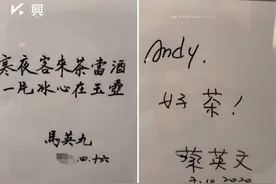 興
寒夜客來茶當酒
一片冰心在玉壺
馬英九
四.十六
Andy.
好茶!
蔡英文
2020